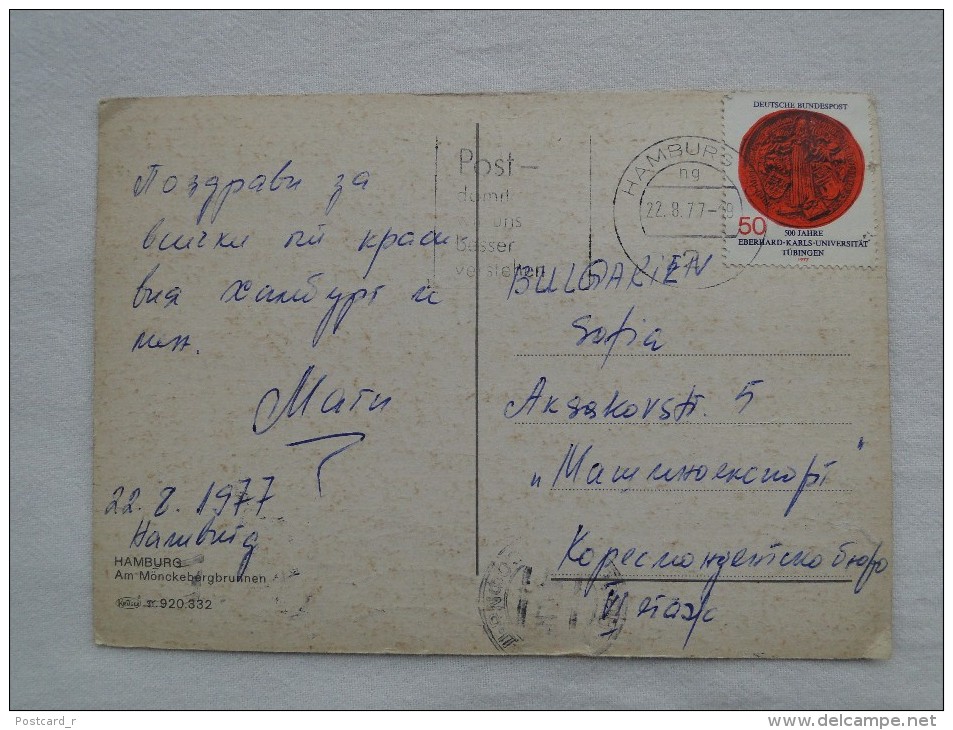 Поздрави за
всички от краси-
вия Хамбург и
мен.
Мати
22.8.1977
Hamburg
HAMBURG
Am Mönckebergbrunnen
Krüger 920.332
Post-
damit
uns
besser
verstehen
HAMBURG
22.8.77-19
DEUTSCHE BUNDESPOST
50
500 JAHRE
EBERHARD-KARLS-UNIVERSITÄT
TÜBINGEN
1977
BULGARIEN
Sofia
Aksakovstr. 5
„Машиноекспорт"
Кореспондентско бюро
етаж
Postcard_r
www.delcampe.net